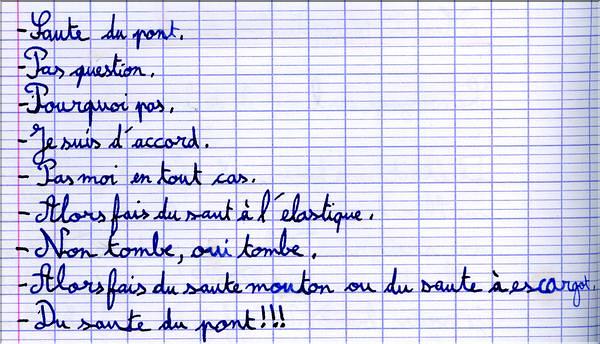 - Saute du pont.
- Pas question.
- Pourquoi pas.
- Je suis d'accord.
- Pas moi en tout cas.
- Alors fais du saut à l'élastique.
- Non tombe, oui tombe.
- Alors fais du saute mouton ou du saute à escargot.
- Du saute du pont!!!